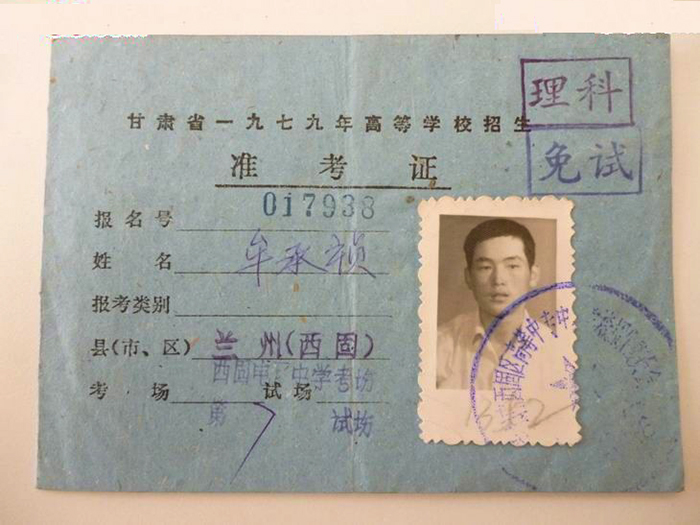 理科
甘肃省一九七九年高等学校招生
免试
准考证
报名号 017938
姓名 牟承祯
报考类别
县(市、区) 兰州(西固)
西固中学考场
考场 试场
第7 试场